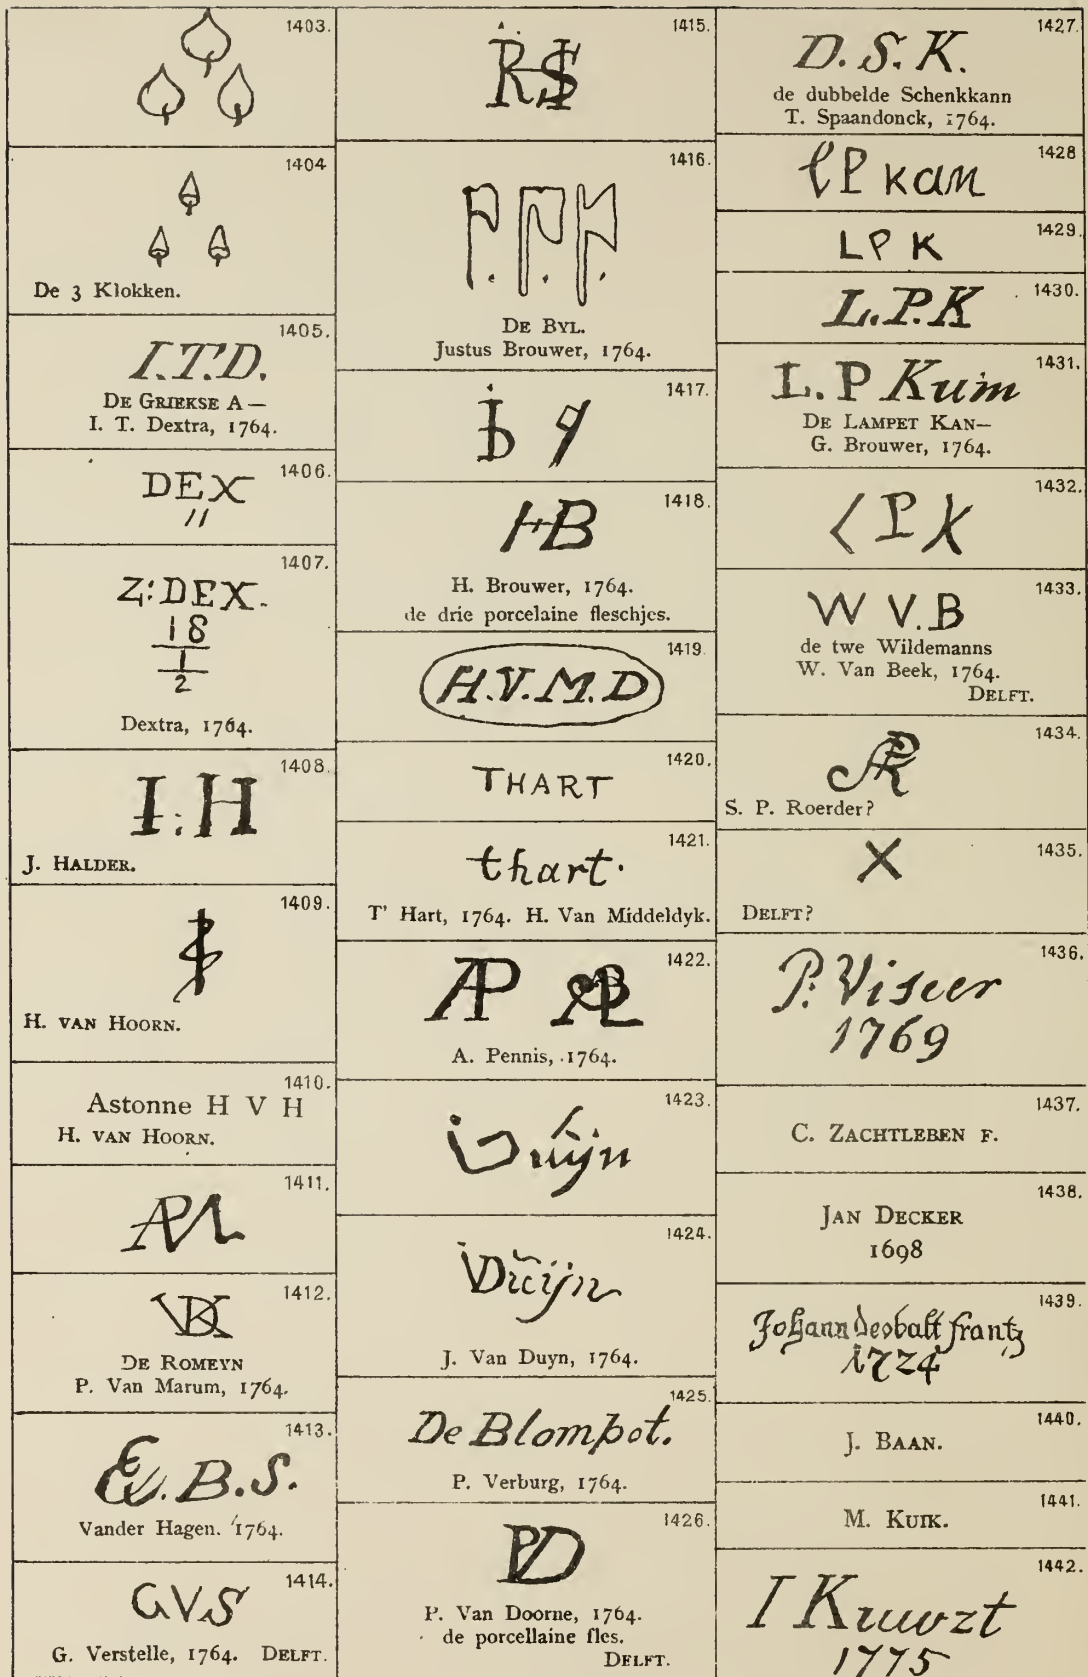 1403.
1404
De 3 Klokken.
1405.
I.T.D.
DE GRIEKSE A—
I. T. Dextra, 1764.
1406.
DEX
"
1407.
Z:DEX.
18
1
2
Dextra, 1764.
1408.
I:H
J. HALDER.
1409.
H. VAN HOORN.
1410.
Astonne H V H
H. VAN HOORN.
1411.
1412.
DE ROMEYN
P. Van Marum, 1764.
1413.
B.S.
Vander Hagen. 1764.
1414.
GVS
G. Verstelle, 1764. DELFT.
1415.
1416.
DE BYL.
Justus Brouwer, 1764.
1417.
1418.
HB
H. Brouwer, 1764.
de drie porcelaine fleschjes.
1419.
H.V.M.D
1420.
THART
1421.
thart.
T' Hart, 1764. H. Van Middeldyk.
1422.
AP
A. Pennis, 1764.
1423.
1424.
J. Van Duyn, 1764.
1425.
De Blompot.
P. Verburg, 1764.
1426.
P. Van Doorne, 1764.
de porcellaine fles.
DELFT.
1427.
D. S. K.
de dubbelde Schenkkann
T. Spaandonck, 1764.
1428
lP kan
1429.
LPK
1430.
L.P.K
1431.
L.P Kuim
DE LAMPET KAN—
G. Brouwer, 1764.
1432.
1433.
W V.B
de twe Wildemanns
W. Van Beek, 1764.
DELFT.
1434.
S. P. Roerder?
1435.
X
DELFT?
1436.
P: Viseer
1769
1437.
C. ZACHTLEBEN F.
1438.
JAN DECKER
1698
1439.
Johann deobalt frantz
1724
1440.
J. BAAN.
1441.
M. KUIK.
1442.
I Kruwzt
1775